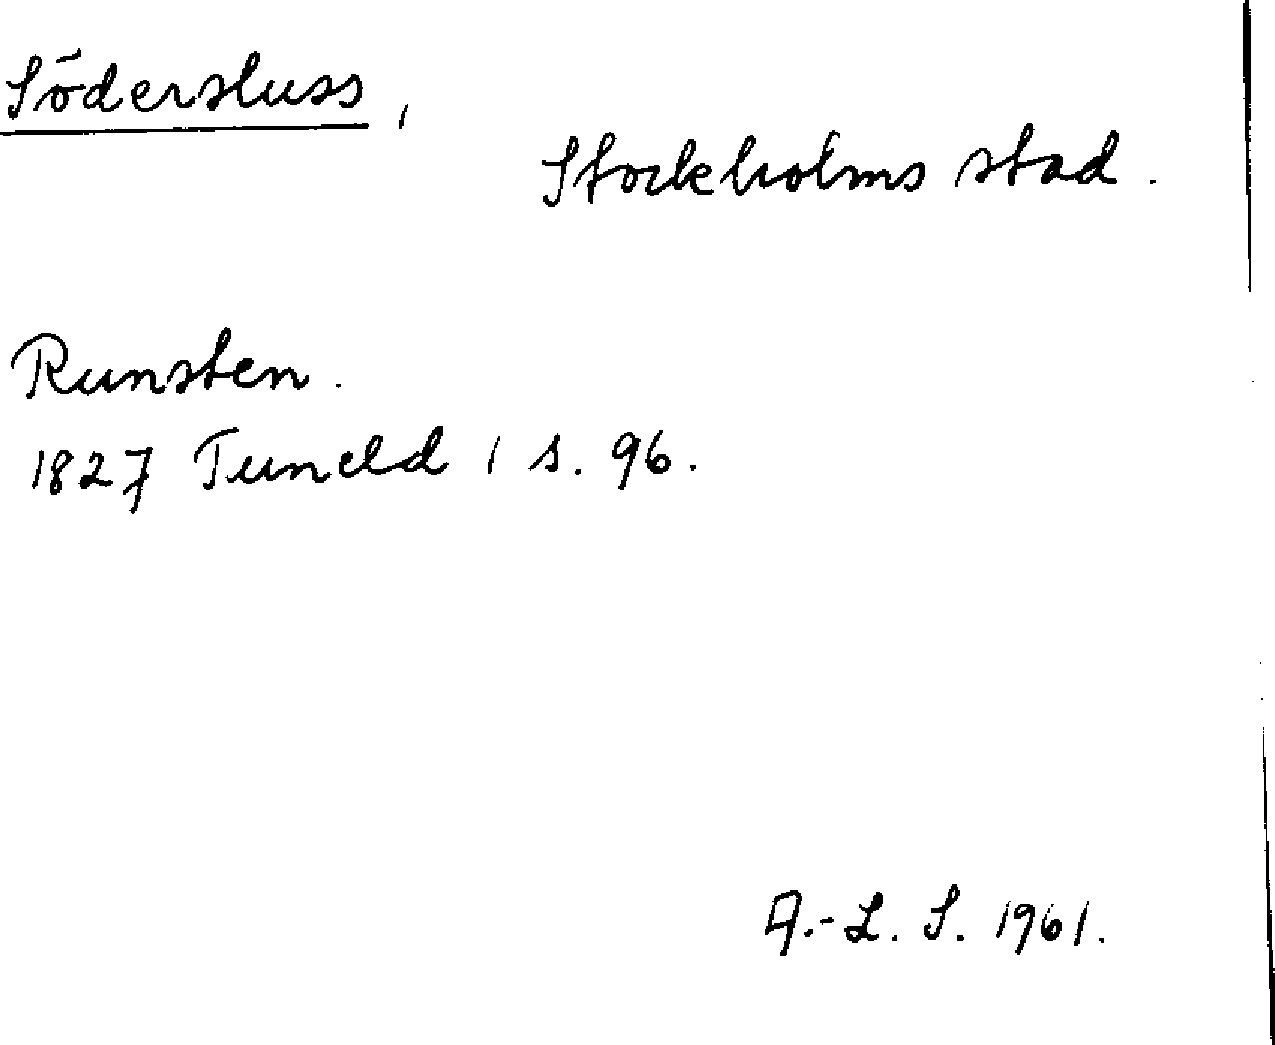 Södersluss,
Stockholms stad.
Runsten.
1827 Tuneld 1 s. 96.
A.-L. S. 1961.